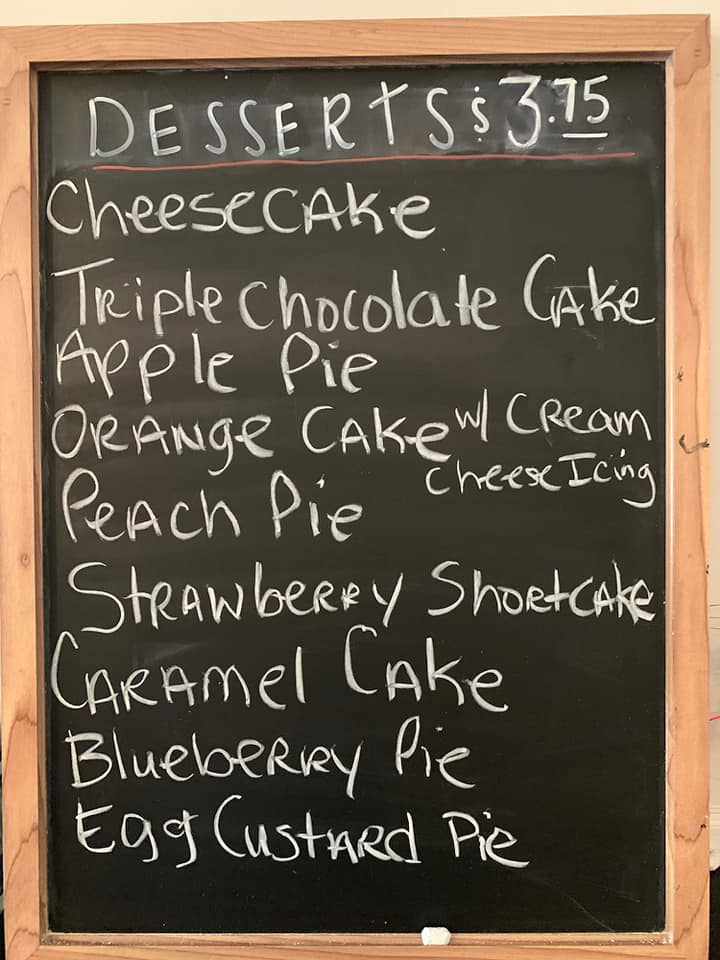 DESSERTS $3.75
CheeseCAke
TRiple Chocolate CAke
Apple Pie
ORANge CAke w/ CReam
cheese Icing
PeAch Pie
StRAwbeRRy ShoRtCAke
CARAmel CAke
BluebeRRy Pie
Egg CustARd Pie